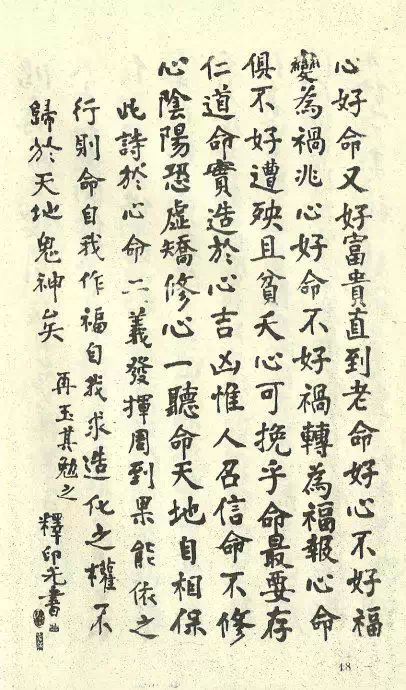 心好命又好富貴直到老命好心不好福
變為禍兆心好命不好禍轉為福報心命
俱不好遭殃且貧夭心可挽乎命最要存
仁道命實造於心吉凶惟人召信命不修
心陰陽恐虛矯修心一聽命天地自相保
此詩於心命二義發揮周到果能依之
行則命自我作福自我求造化之權不
歸於天地鬼神矣
再玉其勉之
釋印光書
48